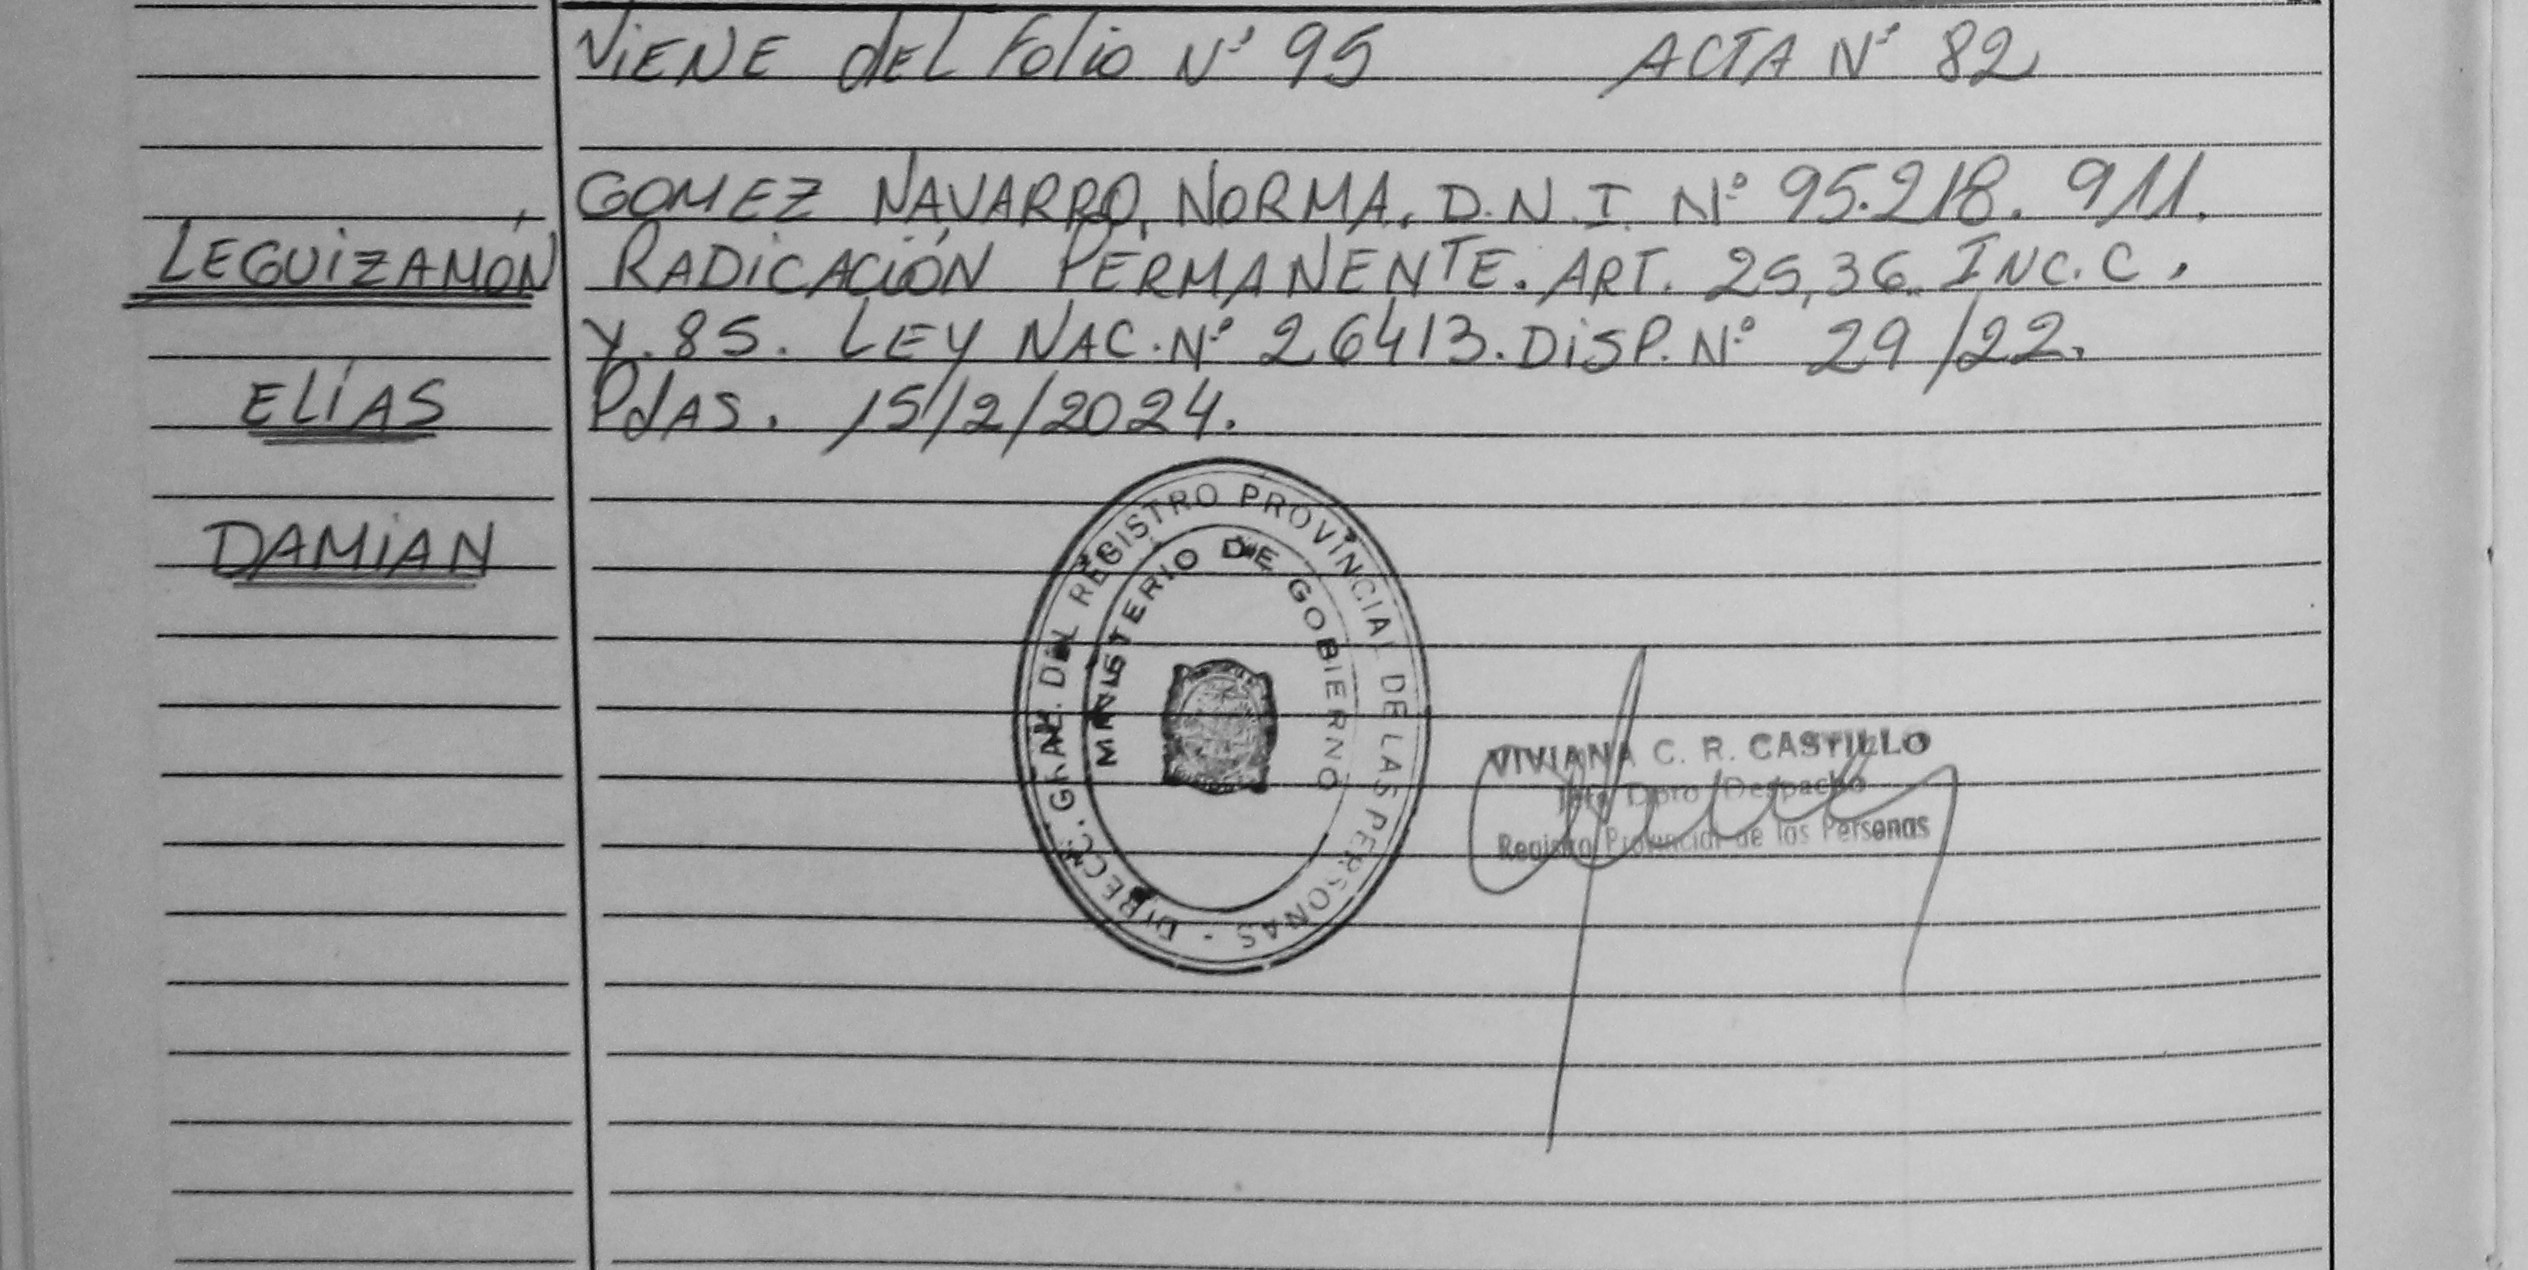 ViENE dEL Folio N° 95 ACTA N° 82
GOMEZ NAVARRO, NORMA. D.N.I. N° 95.218.911.
LEGUiZAMÓN
RADiCACiÓN PERMANENTE. ART. 25,36. INC. C.
y. 85. LEY NAC. N° 26413. DiSP. N° 29/22.
ELÍAS
PdAS. 15/2/2024.
DAMiAN
DIRECC. GRAL. DEL REGISTRO PROVINCIAL DE LAS PERSONAS -
MINISTERIO DE GOBIERNO
VIVIANA C. R. CASTILLO
Jefe Dpto Despacho
Registro Provincial de las Personas